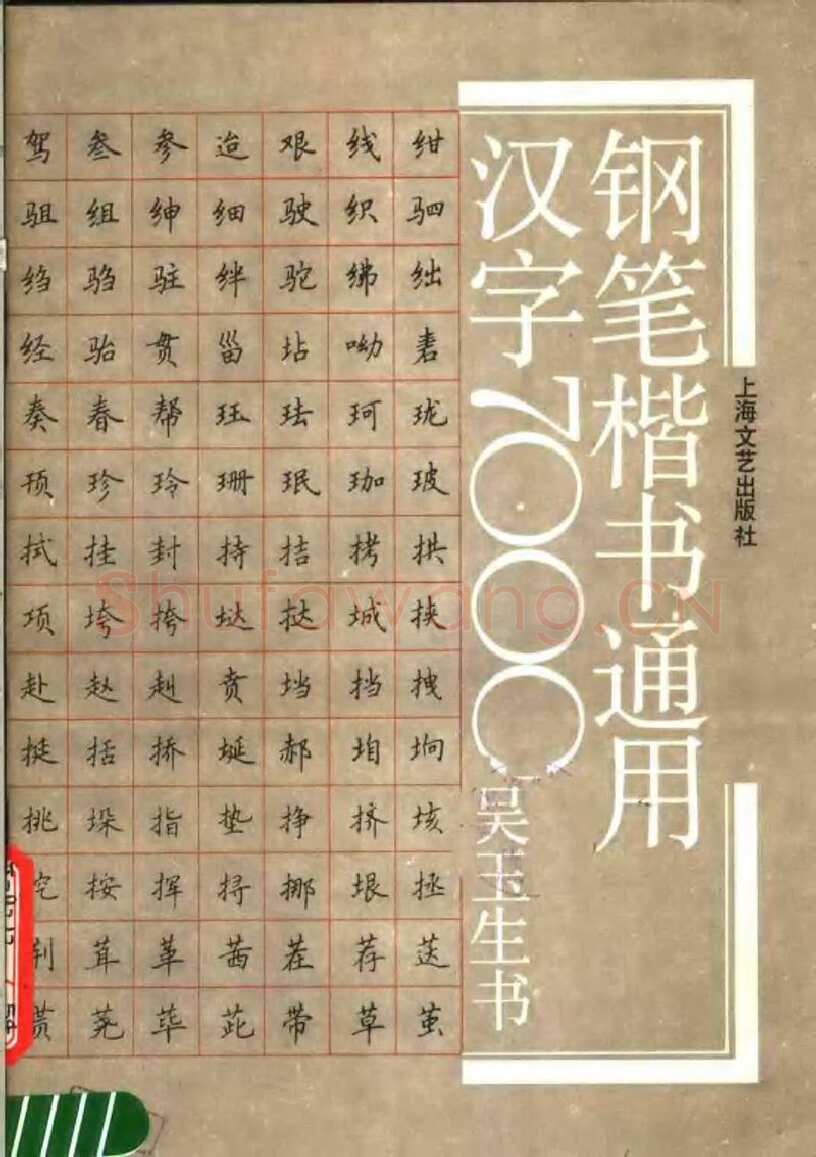 钢笔楷书通用
汉字7000
吴玉生书
上海文艺出版社
驾叁参迨艰线绀
驵组绅细驶织驷
绉驺驻绊驼绋绌
经骀贯甾坫呦砉
奏春帮珏珐珂珑
顸珍玲珊珉珈玻
拭挂封持拮拷拱
项垮挎垯挞城挟
赴赵赳贲垱挡拽
挺括挢埏郝垍垧
挑垛指垫挣挤垓
挖按挥挦挪垠拯
荆茸革茜茬荐荙
贳荛荜茈带草茧
Shufawang.CN